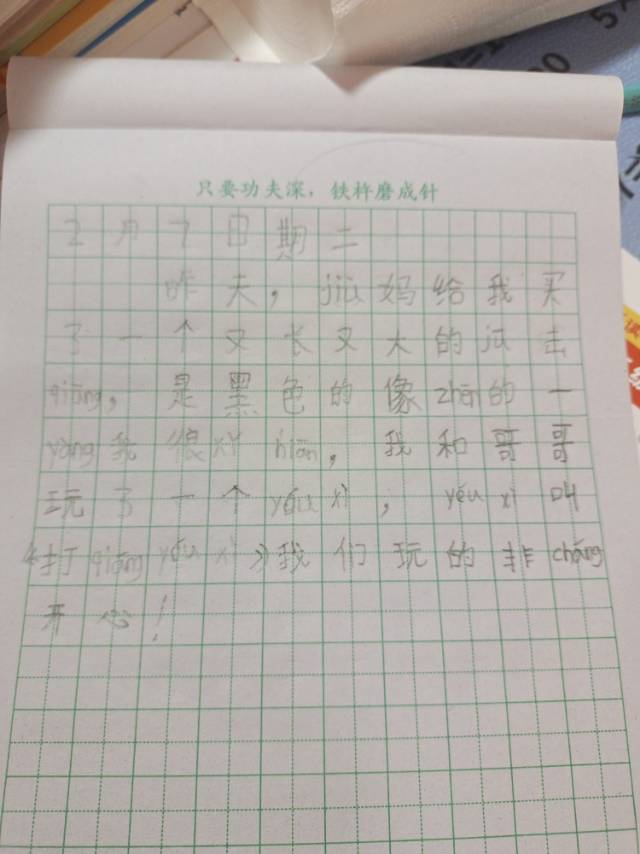 只要功夫深，铁杵磨成针
2月7日期二
昨天，jiù妈给我买
了一个又长又大的jū击
qiāng，是黑色的像zhēn的一
yàng我很xǐ huān，我和哥哥
玩了一个yóu xì，yóu xì叫
《打qiāng yóu xì》我们玩的非cháng
开心！